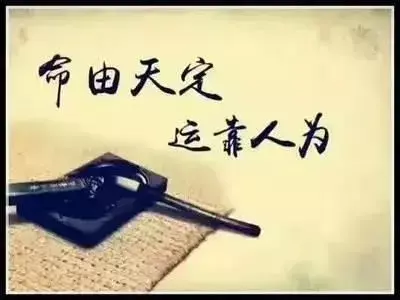 命由天定
运靠人为